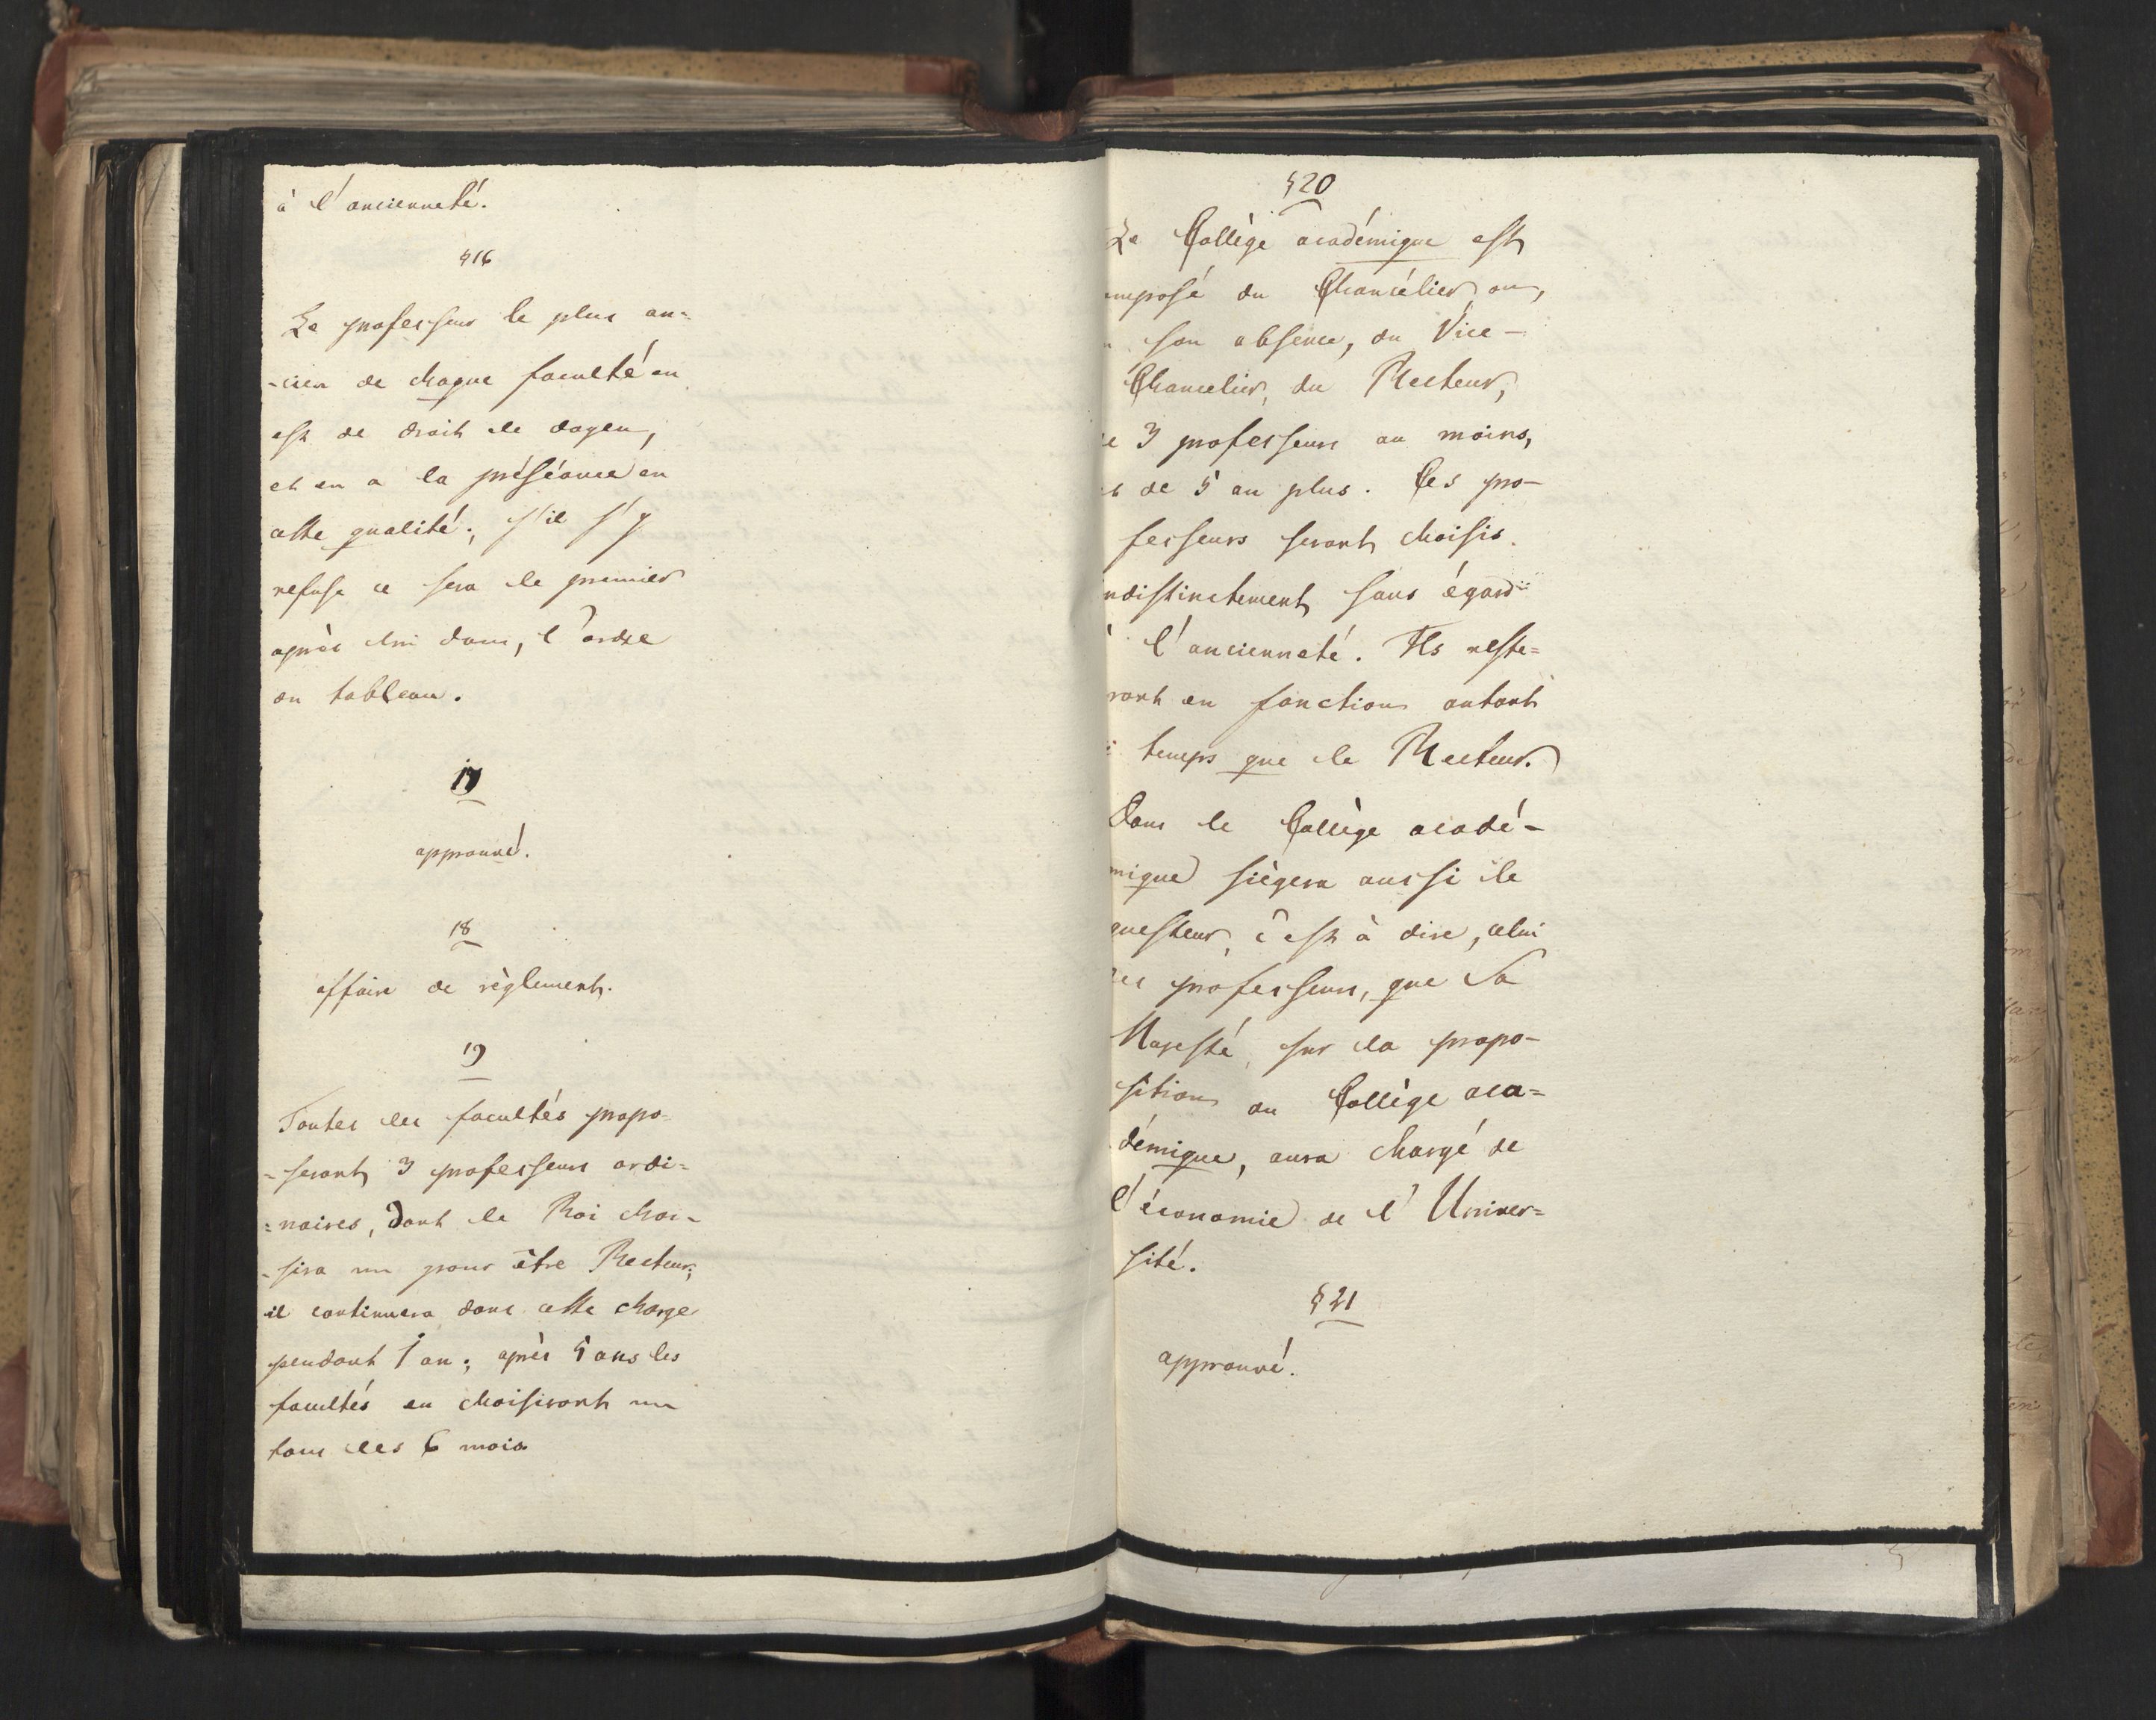 à l'ancienneté.
§16
Le professeur le plus an-
-cien de chaque faculté en
est de droit le doyen,
et en a la préséance en
cette qualité; s'il s'y
refuse ce sera le premier
après lui dans, l'ordre
du tableau.
17
approuvé.
18
affaire de règlement.
19
Toutes les facultés propo-
-seront 3 professeurs ordi=
=naires, dont le Roi choi-
-sira un pour être Recteur;
il continuera dans cette charge
pendant 1 an; après 5 ans les
facultés en choisiront un
tous les 6 mois
§20
Le Collège académique est
omposé du Chancélier ou,
n son absence, du Vice-
Chancelier, du Recteur,
e 3 professeurs au moins,
et de 5 au plus. Ces pro-
fesseurs seront choisis
ndistinctement sans égard
à l'ancienneté. Ils reste=
ront en fonctions autant
temps que le Recteur.
Dans le Collège acadé-
mique siègera aussi le
questeur, c'est à dire, celui
des professeurs, que Sa
Majesté, sur la propo-
sition du Collège aca=
démique, aura chargé de
l'économie de l'Univer=
sité.
§21
approuvé.